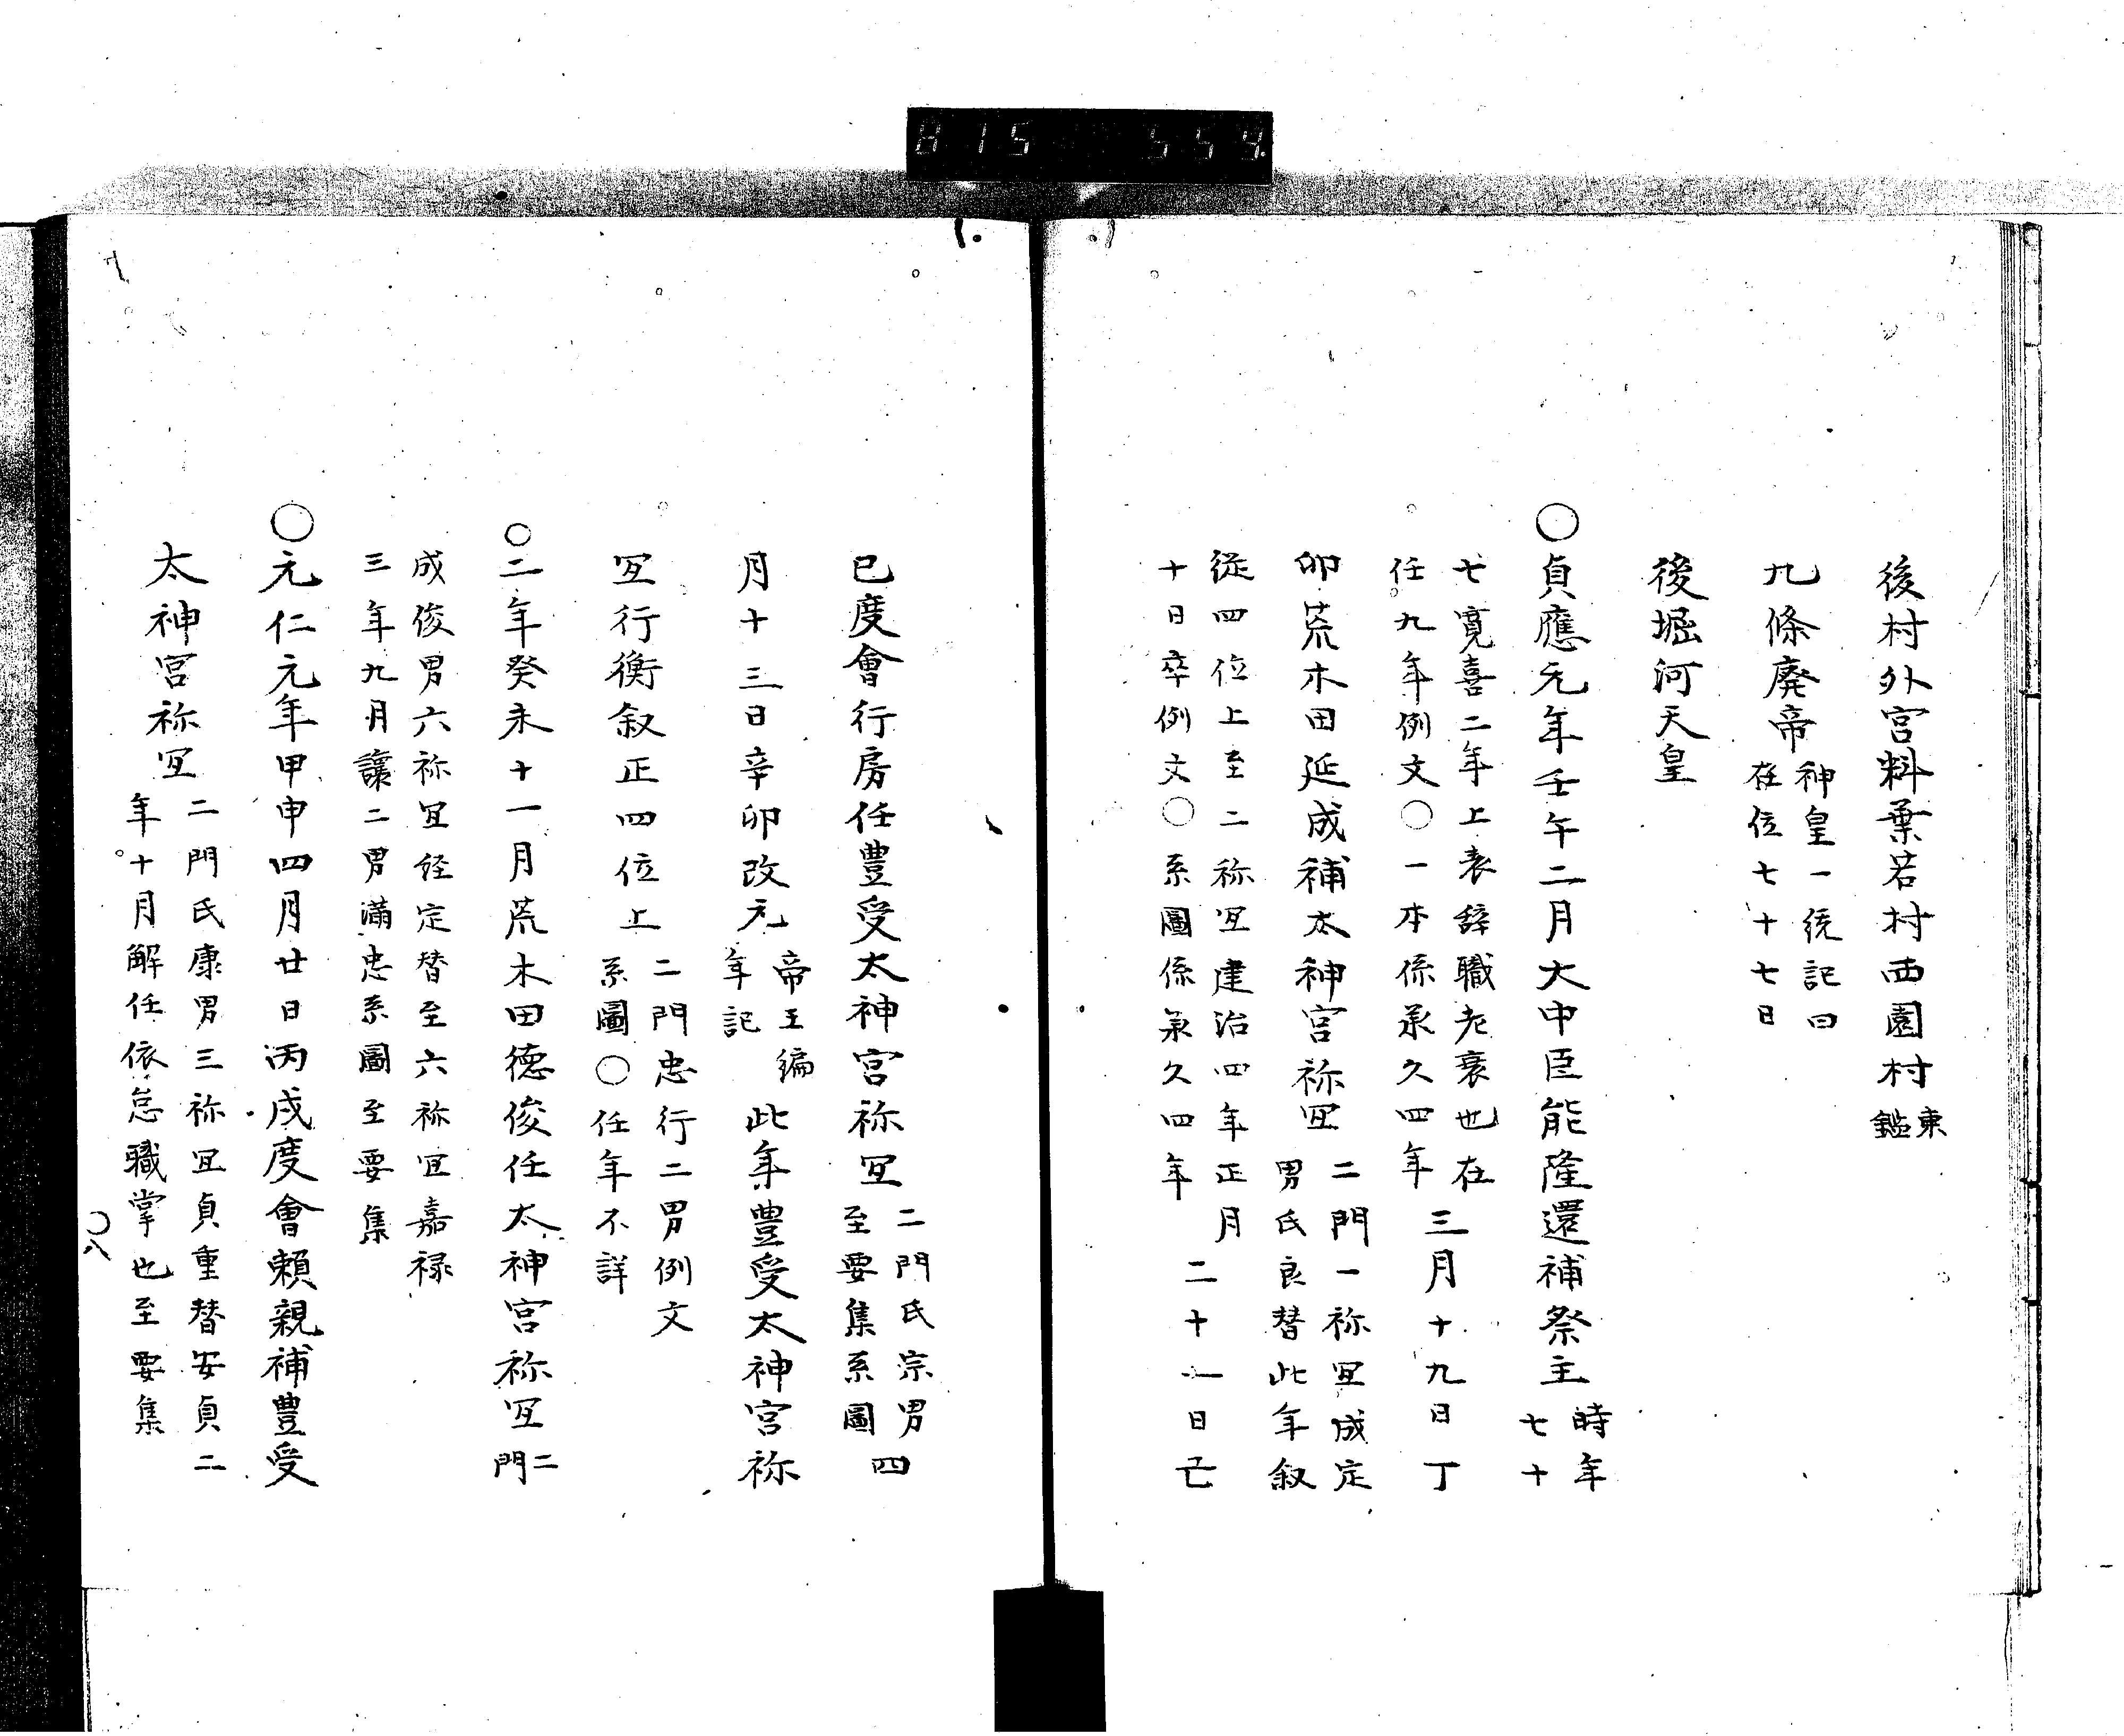 815 554
後村外宮料葉若村西園村 東
鑑
九條廢帝 神皇一統記曰
在位七十七日
後堀河天皇
○貞應元年壬午二月大中臣能隆還補祭主 時年
七十
七寛喜二年上表辞職老衰也在
任九年例文○一本係承久四年 三月十九日丁
卯荒木田延成補太神宮祢冝 二門一祢冝成定
男氏良替此年叙
從四位上至二祢冝建治四年正月
十日卒例文○系圖係承久四年 二十一日己
巳度會行房任豊受太神宮祢冝 二門氏宗男
至要集系圖 四
月十三日辛卯改元 帝王編
年記 此年豊受太神宮祢
冝行衡叙正四位上 二門忠行二男例文
系圖○任年不詳
○二年癸未十一月荒木田德俊任太神宮祢冝 二
門
成俊男六祢冝経定替至六祢冝嘉禄
三年九月讓二男滿忠系圖至要集
○元仁元年甲申四月廿日丙戌度會頼親補豊受
太神宮祢冝 二門氏康男三祢冝貞重替安貞二
年十月解任依怠職掌也至要集
○八